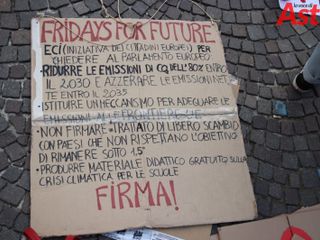 FRIDAYS FOR FUTURE
ECI (INIZIATIVA DEI CITTADINI EUROPEI) PER
CHIEDERE AL PARLAMENTO EUROPEO
• RIDURRE LE EMISSIONI DI CO2 DELL'80% ENTRO
IL 2030 E AZZERARE LE EMISSIONI NET
TE ENTRO IL 2035
• ISTITUIRE UN MECCANISMO PER ADEGUARE LE
EMISSIONI ALLE FRONTIERE
• NON FIRMARE TRATTATO DI LIBERO SCAMBIO
CON PAESI CHE NON RISPETTANO L'OBIETTIVO
DI RIMANERE SOTTO 1.5°
• PRODURRE MATERIALE DIDATTICO GRATUITO SULLA
CRISI CLIMATICA PER LE SCUOLE
FIRMA!
Ast